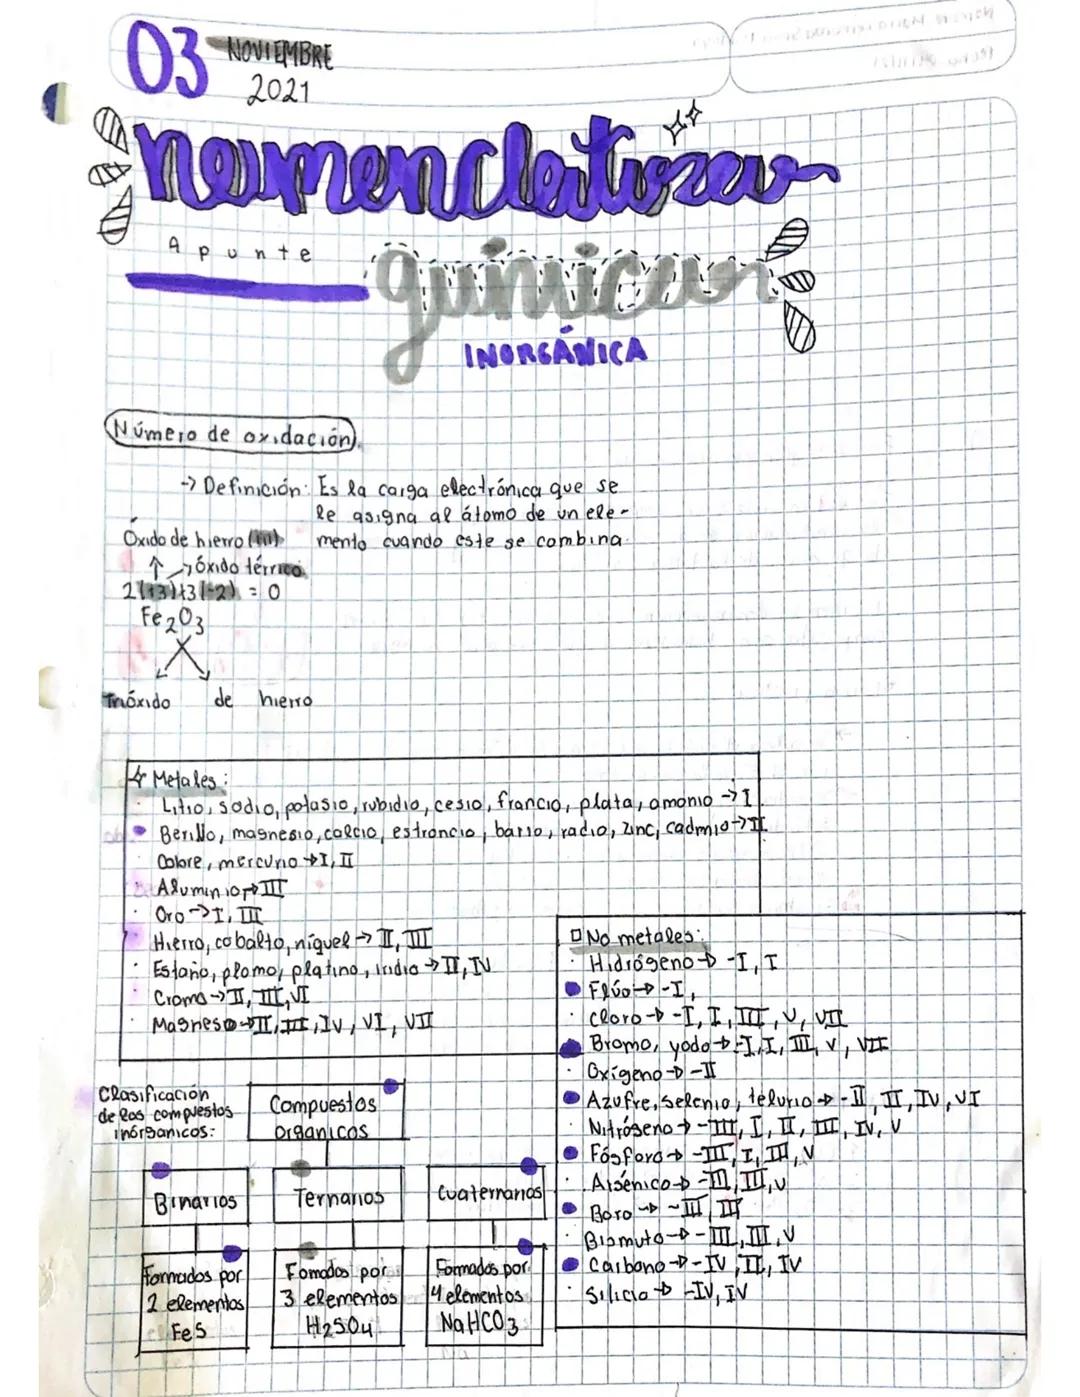 03 NOVIEMBRE
2021
nomenclatura
Apunte
química
INORGÁNICA
Número de oxidación
-> Definición: Es la carga electrónica que se
le asigna al átomo de un ele-
mento cuando este se combina.
Óxido de hierro (III)
↑ óxido férrico
2(+3)+3(-2) = 0
Fe2O3
Trióxido de hierro
Metales:
· Litio, sodio, potasio, rubidio, cesio, francio, plata, amonio -> I
· Berilio, magnesio, calcio, estroncio, bario, radio, zinc, cadmio -> II
· Cobre, mercurio -> I, II
· Aluminio -> III
· Oro -> I, III
· Hierro, cobalto, níquel -> II, III
· Estaño, plomo, platino, iridio -> II, IV
· Cromo -> II, III, VI
· Magneso -> II, III, IV, VI, VII
No metales:
· Hidrógeno -> -I, I
· Flúor -> -I,
· Cloro -> -I, I, III, V, VII
· Bromo, yodo -> -I, I, III, V, VII
· Oxígeno -> -II
· Azufre, selenio, telurio -> -II, II, IV, VI
· Nitrógeno -> -III, I, II, III, IV, V
· Fósforo -> -III, I, III, V
· Arsénico -> -III, III, V
· Boro -> -III, III
· Bismuto -> -III, III, V
· Carbono -> -IV, II, IV
· Silicio -> -IV, IV
Clasificación
de los compuestos
inorganicos:
Compuestos
organicos
Binarios
Ternarios
Cuaternarios
Formados por
2 elementos
FeS
Fomados por
3 elementos
H2SO4
Formados por
4 elementos
NaHCO3